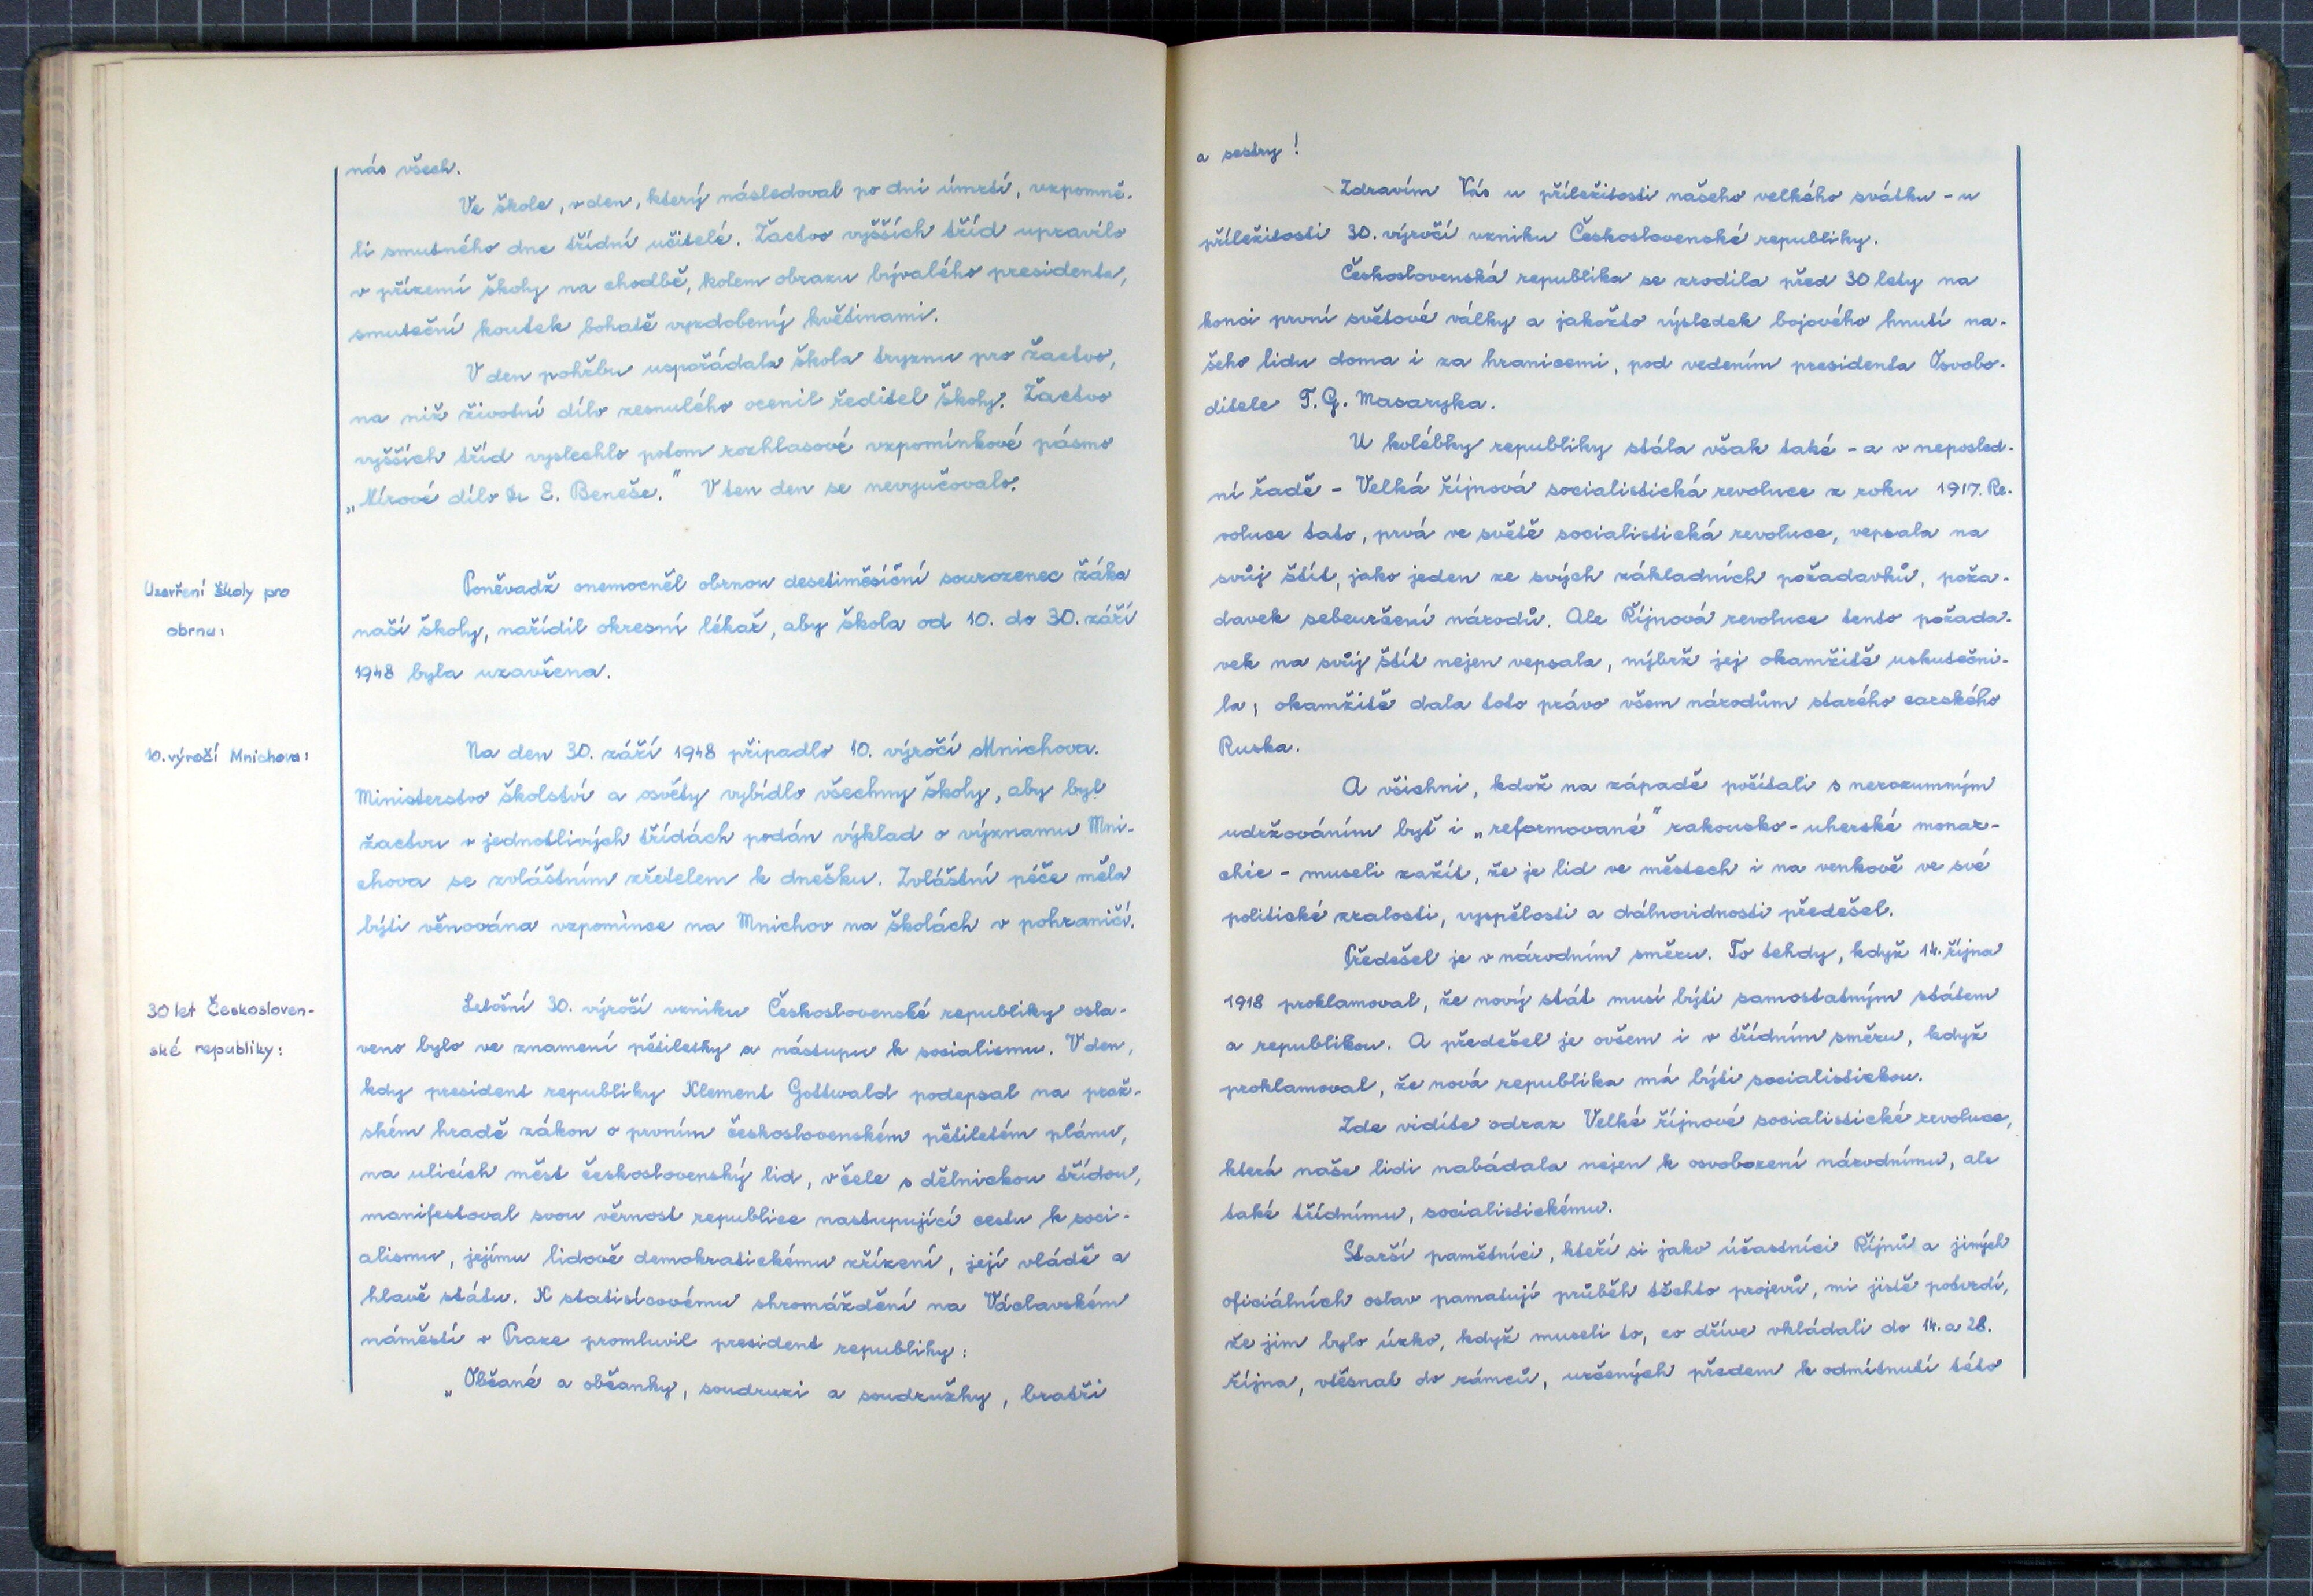 nás všech.
Ve škole, v den, který následoval po dni úmrtí, vzpomně-
li smutného dne třídní učitelé. Žactvo vyšších tříd upravilo
v přízemí školy na chodbě, kolem obrazu bývalého presidenta,
smuteční koutek bohatě vyzdobený květinami.
V den pohřbu uspořádala škola tryznu pro žactvo,
na niž životní dílo zesnulého ocenil ředitel školy. Žactvo
vyšších tříd vyslechlo potom rozhlasové vzpomínkové pásmo
„Mírové dílo Dr E. Beneše." V ten den se nevyučovalo.
Uzavření školy pro
obrnu:
Poněvadž onemocněl obrnou desetiměsíční sourozenec žáka
naší školy, nařídil okresní lékař, aby škola od 10. do 30. září
1948 byla uzavřena.
10. výročí Mnichova:
Na den 30. září 1948 připadlo 10. výročí Mnichova.
Ministerstvo školství a osvěty vybídlo všechny školy, aby byl
žactvu v jednotlivých třídách podán výklad o významu Mni-
chova se zvláštním zřetelem k dnešku. Zvláštní péče měla
býti věnována vzpomínce na Mnichov na školách v pohraničí.
30 let Českosloven-
ské republiky:
Letošní 30. výročí vzniku Československé republiky osla-
veno bylo ve znamení pětiletky a nástupu k socialismu. V den,
kdy president republiky Klement Gottwald podepsal na praž-
ském hradě zákon o prvním československém pětiletém plánu,
na ulicích měst československý lid, v čele s dělnickou třídou,
manifestoval svou věrnost republice nastupující cestu k soci-
alismu, jejímu lidově demokratickému zřízení, její vládě a
hlavě státu. K statisícovému shromáždění na Václavském
náměstí v Praze promluvil president republiky:
„Občané a občanky, soudruzi a soudružky, bratři
a sestry!
Zdravím Vás u příležitosti našeho velkého svátku - u
příležitosti 30. výročí vzniku Československé republiky.
Československá republika se zrodila před 30 lety na
konci první světové války a jakožto výsledek bojového hnutí na-
šeho lidu doma i za hranicemi, pod vedením presidenta Osvobo-
ditele T. G. Masaryka.
U kolébky republiky stála však také - a v neposled-
ní řadě - Velká říjnová socialistická revoluce z roku 1917. Re-
voluce tato, prvá ve světě socialistická revoluce, vepsala na
svůj štít, jako jeden ze svých základních požadavků, poža-
davek sebeurčení národů. Ale Říjnová revoluce tento požada-
vek na svůj štít nejen vepsala, nýbrž jej okamžitě uskutečni-
la; okamžitě dala toto právo všem národům starého carského
Ruska.
A všichni, kdož na západě počítali s nerozumným
udržováním byť i „reformované" rakousko-uherské monar-
chie - museli zažít, že je lid ve městech i na venkově ve své
politické zralosti, vyspělosti a dálnovidnosti předešel.
Předešel je v národním směru. To tehdy, když 14. října
1918 proklamoval, že nový stát musí býti samostatným státem
a republikou. A předešel je ovšem i v třídním směru, když
proklamoval, že nová republika má býti socialistickou.
Zde vidíte odraz Velké říjnové socialistické revoluce,
která naše lidi nabádala nejen k osvobození národnímu, ale
také třídnímu, socialistickému.
Starší pamětníci, kteří si jako účastníci Říjnů a jiných
oficiálních oslav pamatují průběh těchto projevů, mi jistě potvrdí,
že jim bylo úzko, když museli to, co dříve vkládali do 14. a 28.
října, vtěsnat do rámců, určených předem k odmítnutí této